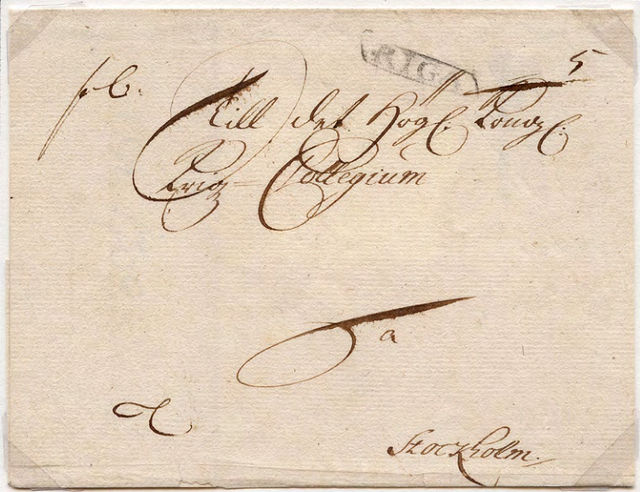 RIGA
5
Till det Högl. Kongl.
Krigz-Collegium
a
Stockholm.